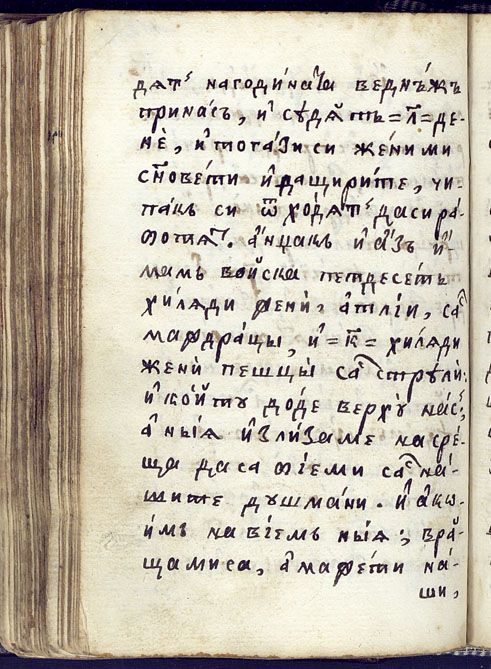 дѧт̾ нагоди́наꙗ ведно́жъ
принас̾ъ, и҆ сꙋдѧ́тъ = л҃ = де-
нѐ, и҆ тога́зи си же́ними
сн҃овети и҆ дащири́те, чи-
пакъ си ѿхо́дѧт̾ да си ра́-
ботѧт̾. а҆нцакъ и҆ а҆́зъ и҆-
мамъ во́йска петдесе́тъ
хи́лѧди жени̂, а҆тлі́и, са
маждра́цы, и҆ = к҃ = хи́лѧди
женѝ пешцы̀ са стрꙋлѝ:
и҆ ко́йту до́де верхꙋ̀ на́с̾,
а҆ ны́ѧ и҆зли́заме насре́-
ща да са бі́еми са на́-
шите душма́ни. и҆ а҆кѡ-
и҆мъ навіемъ ны́ѧ; вра̀-
щамиса, а҆ маже́ти на́-
ши,